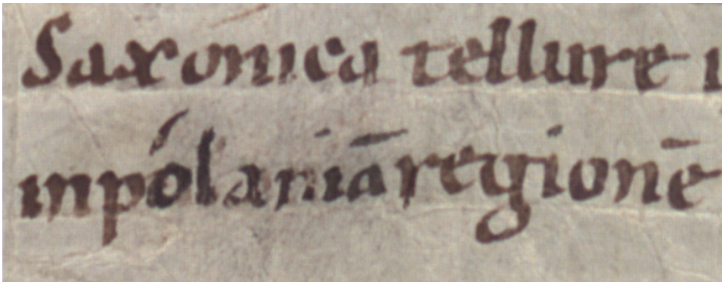 Saxonica tellure
inpólaniā regionē